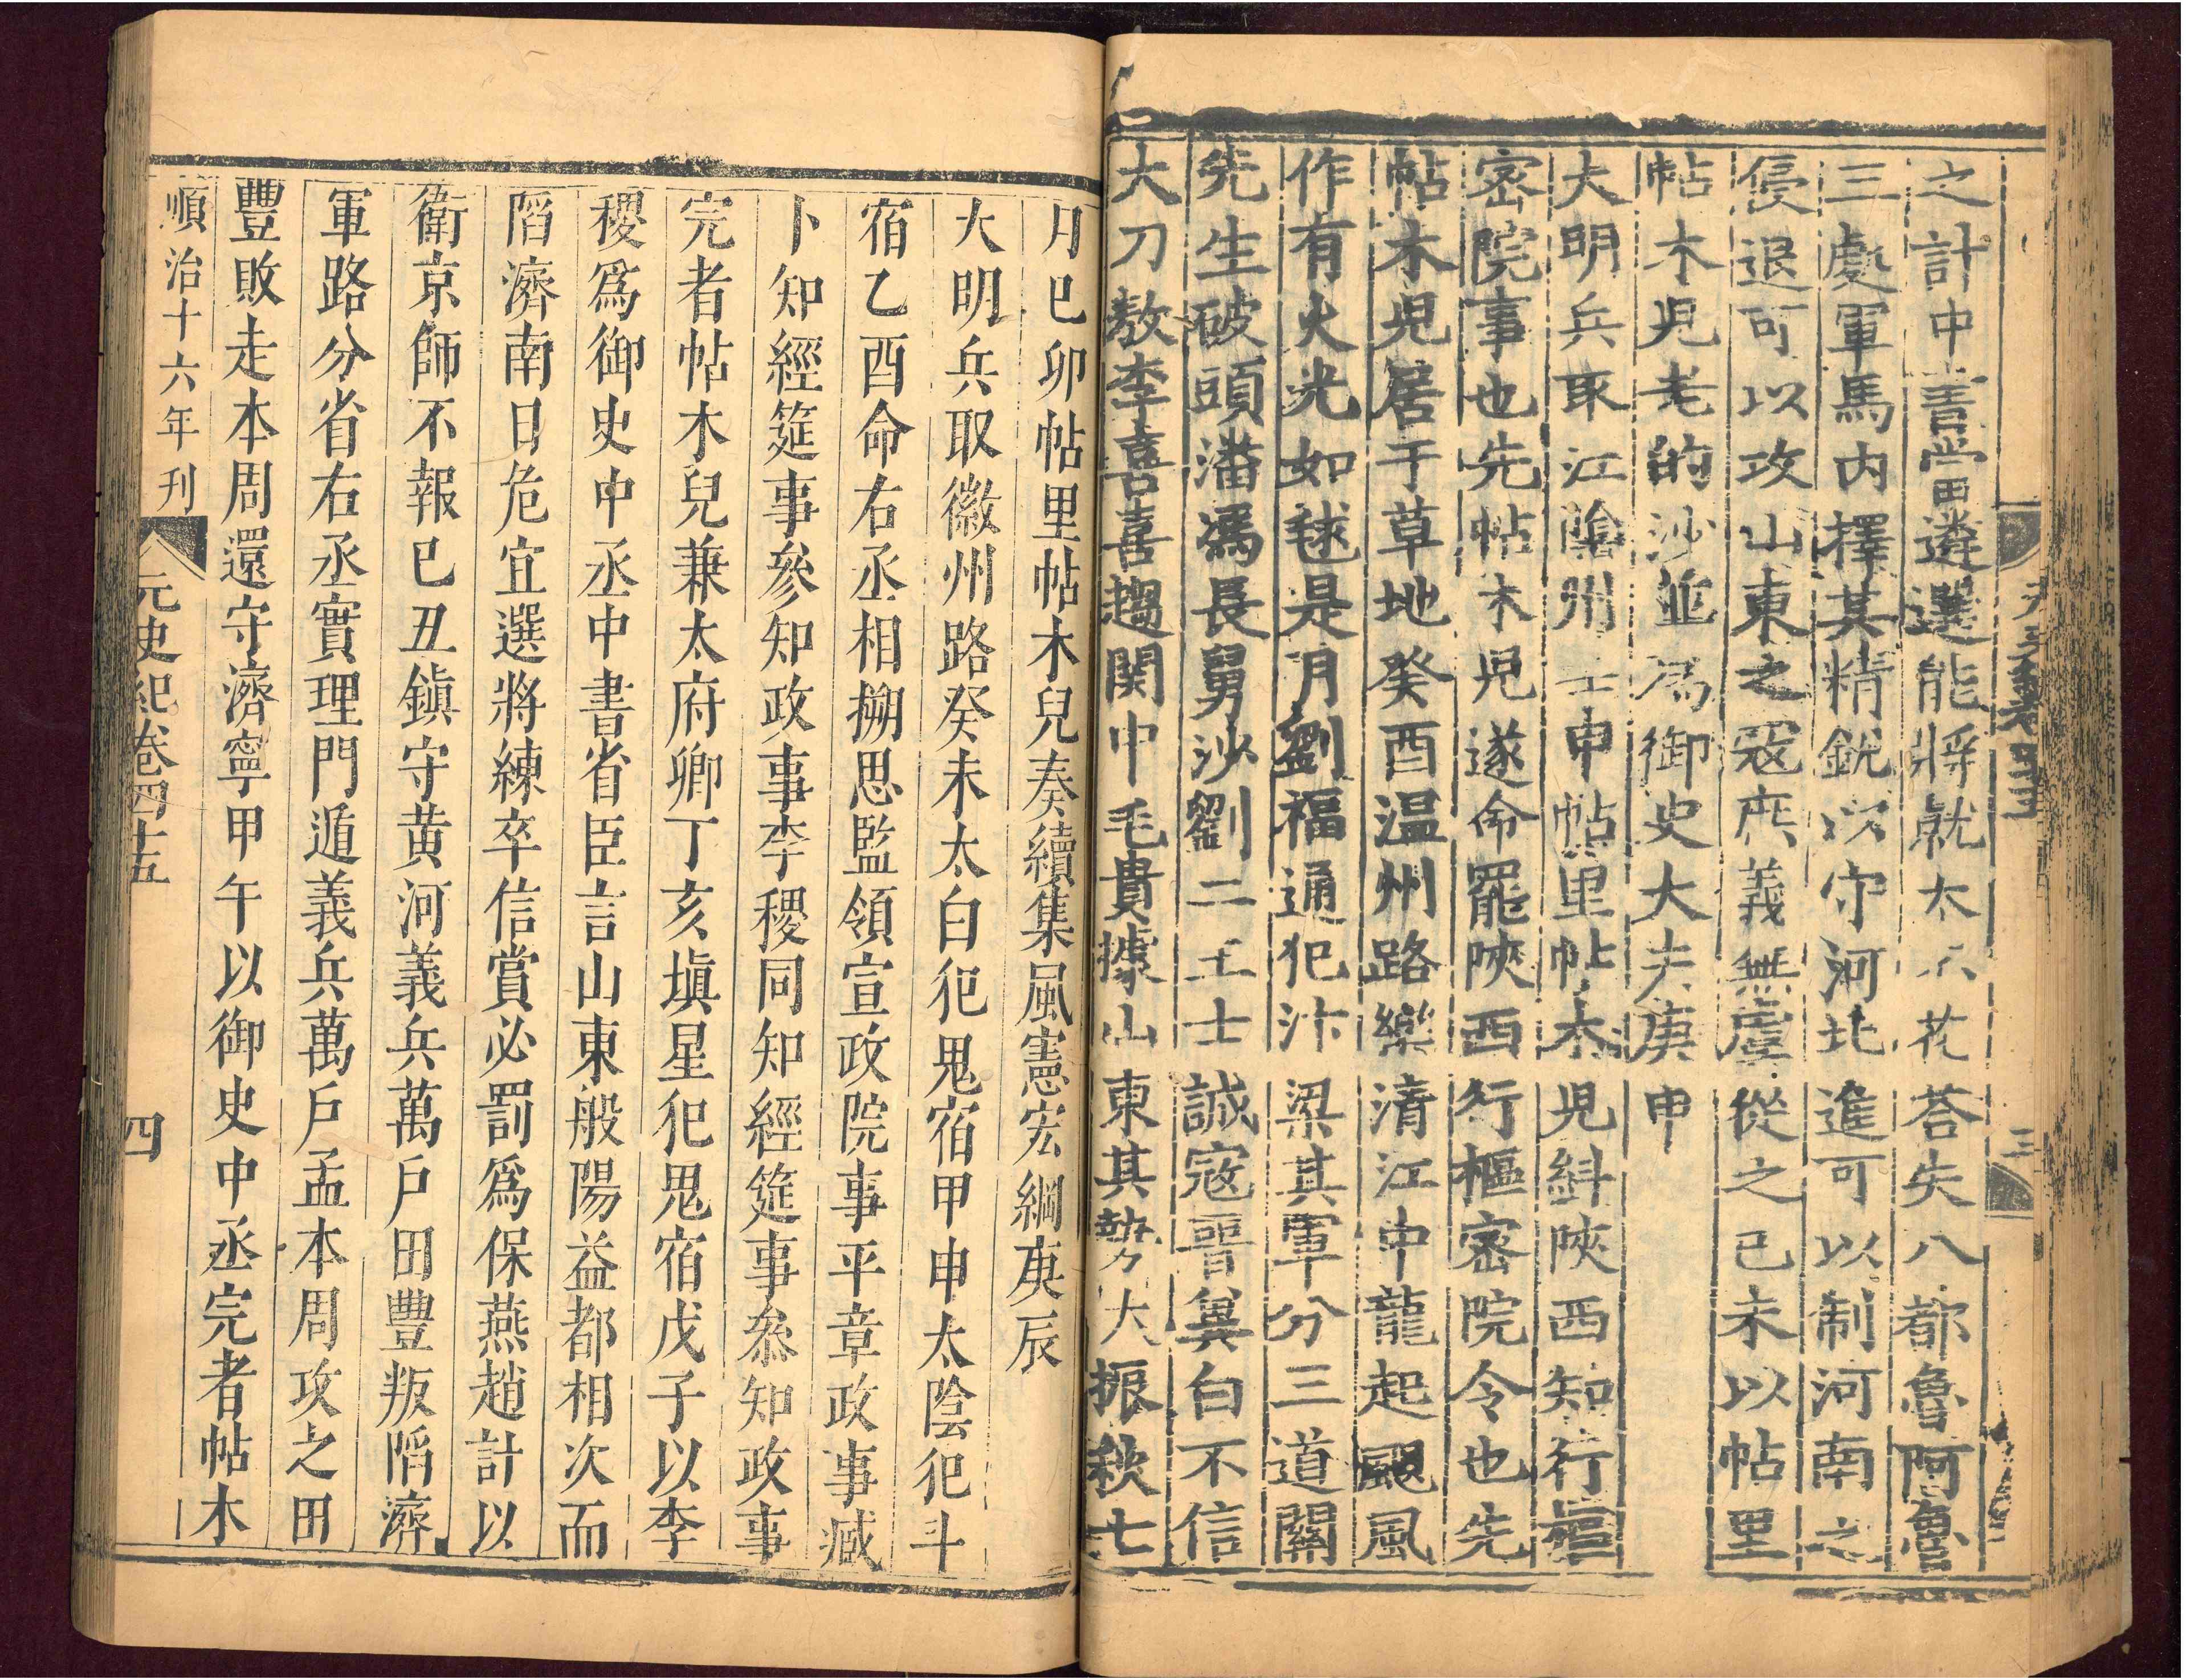 之計中書當遴選能將就太不花荅失八都魯阿魯
三處軍馬內擇其精銳以守河北進可以制河南之
侵退可以攻山東之寇庶義無虞從之己未以帖里
帖木兒老的沙並爲御史大夫庚申
大明兵取江陰州壬申帖里帖木兒紏陝西知行樞
密院事也先帖木兒遂命罷陝西行樞密院令也先
帖木兒居于草地癸酉温州路樂清江中龍起颶風
作有火光如毬是月劉福通犯汴梁其軍分三道關
先生破頭潘馮長舅沙劉二王士誠寇晉冀白不信
大刀敖李喜喜趨関中毛貴據山東其勢大振秋七
月已卯帖里帖木兒奏續集風憲宏綱庚辰
大明兵取徽州路癸未太白犯鬼宿甲申太陰犯斗
宿乙酉命右丞相搠思監領宣政院事平章政事臧
卜知經筵事參知政事李稷同知經筵事叅知政事
完者帖木兒兼太府卿丁亥塡星犯鬼宿戊子以李
稷爲御史中丞中書省臣言山東般陽益都相次而
䧟濟南日危宜選將練卒信賞必罰爲保燕趙計以
衛京師不報已丑鎮守黄河義兵萬戶田豐叛䧟濟
軍路分省右丞實理門遁義兵萬戶孟本周攻之田
豐敗走本周還守濟寧甲午以御史中丞完者帖木
順治十六年刊
元史紀卷四十五
四